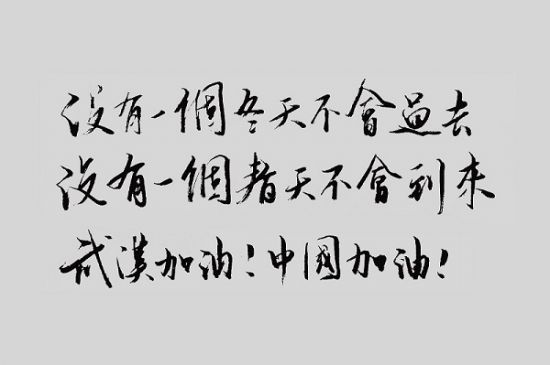 沒有一個冬天不會過去
沒有一個春天不會到來
武漢加油！中國加油！